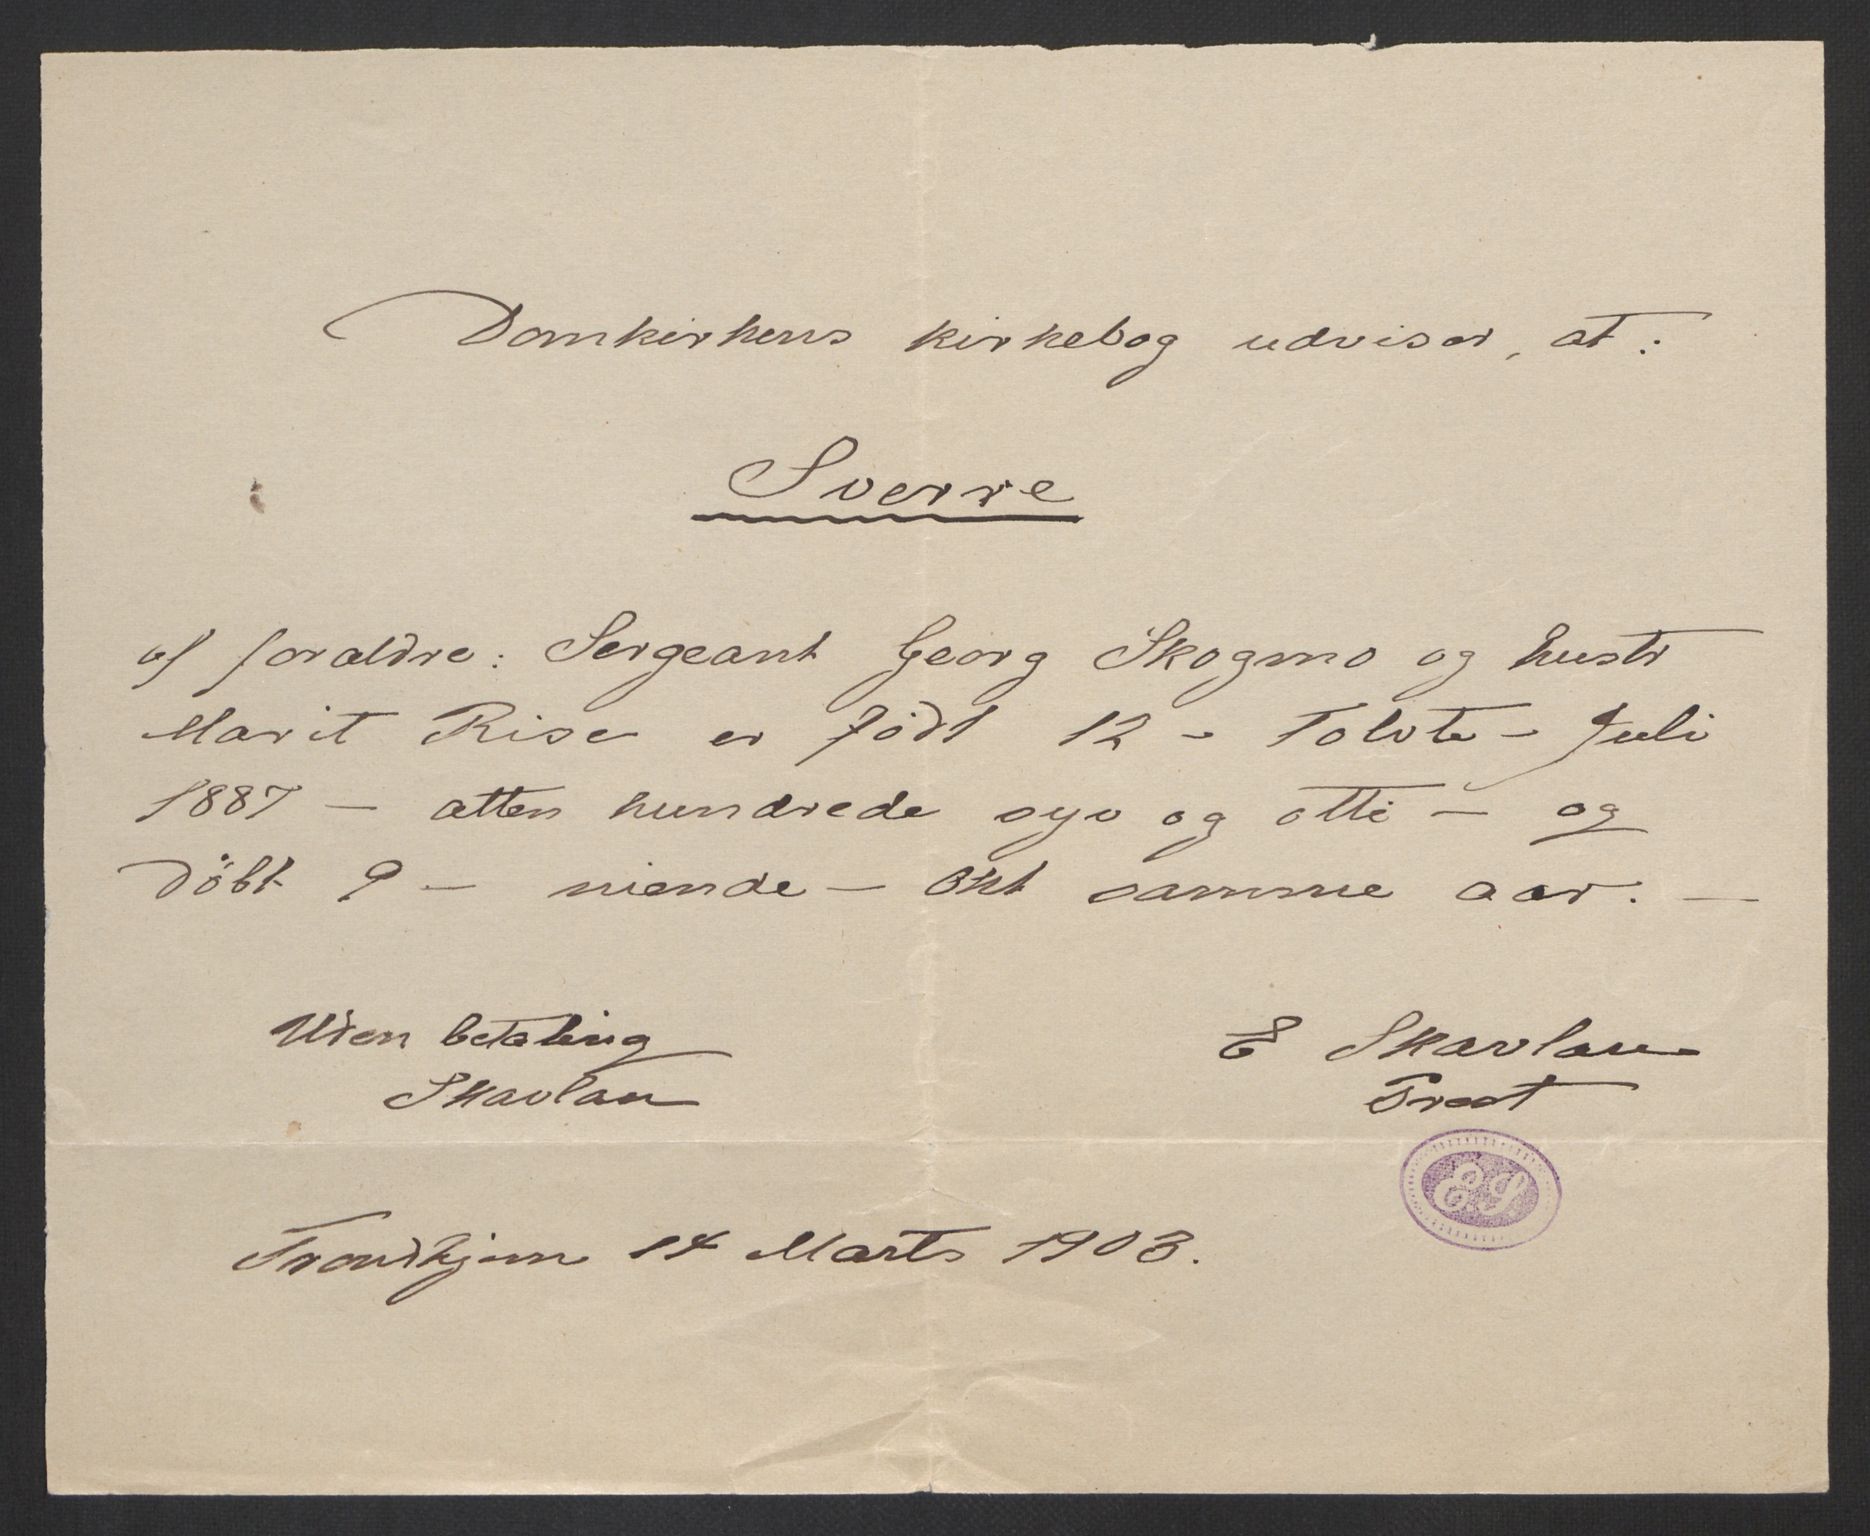 Domkirkens kirkebog udviser, at:
Sverre
af forældre: Sergeant Georg Skogmo og hustr
Marit Rise er födt 12 - tolvte - Juli
1887 - atten hundrede syv og otti - og
döbt 9 - niende - Okt samme aar. -
Uden betaling
Skavlan
E Skavlan
Provst
E.S
Trondhjem 14 Marts 1903.